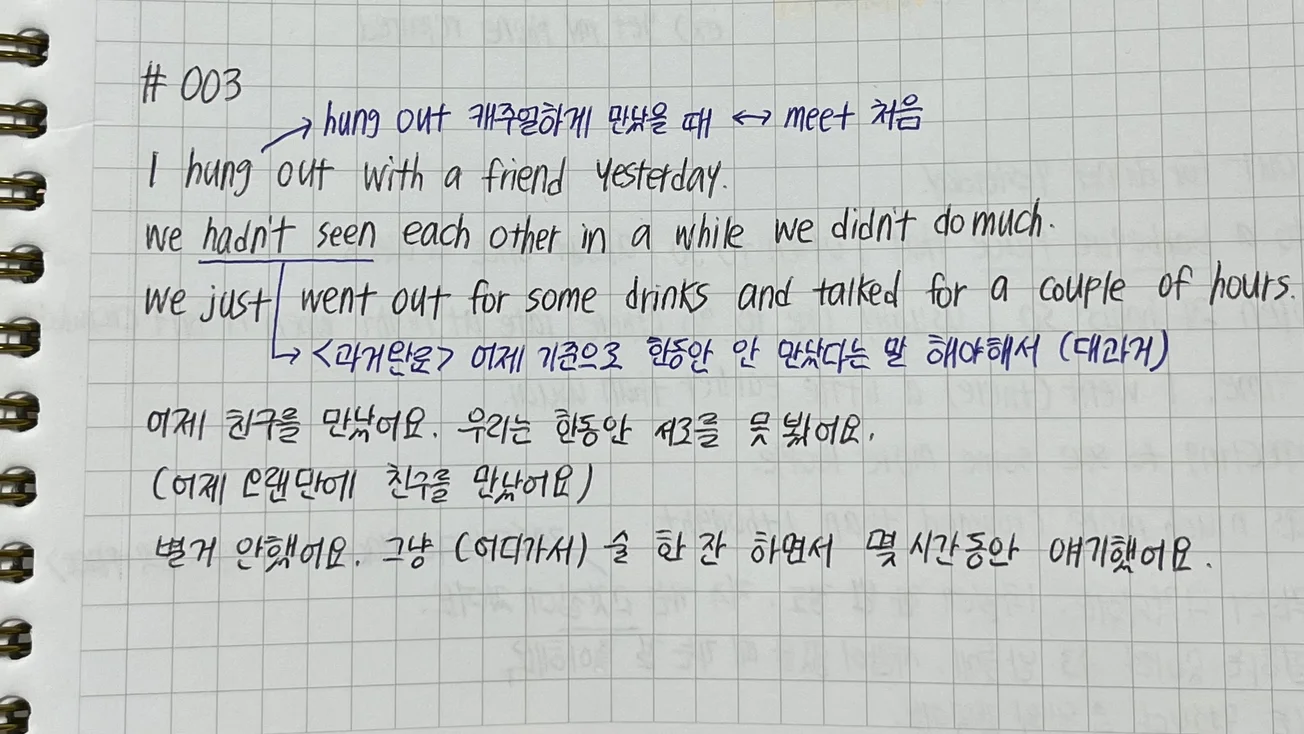 # 003
hung out 캐주얼하게 만났을 때 ↔ meet 처음
I hung out with a friend yesterday.
we hadn't seen each other in a while we didn't do much.
we just went out for some drinks and talked for a couple of hours.
<과거완료> 어제 기준으로 한동안 안 만났다는 말 해야해서 (대과거)
어제 친구를 만났어요. 우리는 한동안 서로를 못 봤어요.
(어제 오랜만에 친구를 만났어요)
별거 안했어요. 그냥 (어디가서) 술 한 잔 하면서 몇 시간동안 얘기했어요.